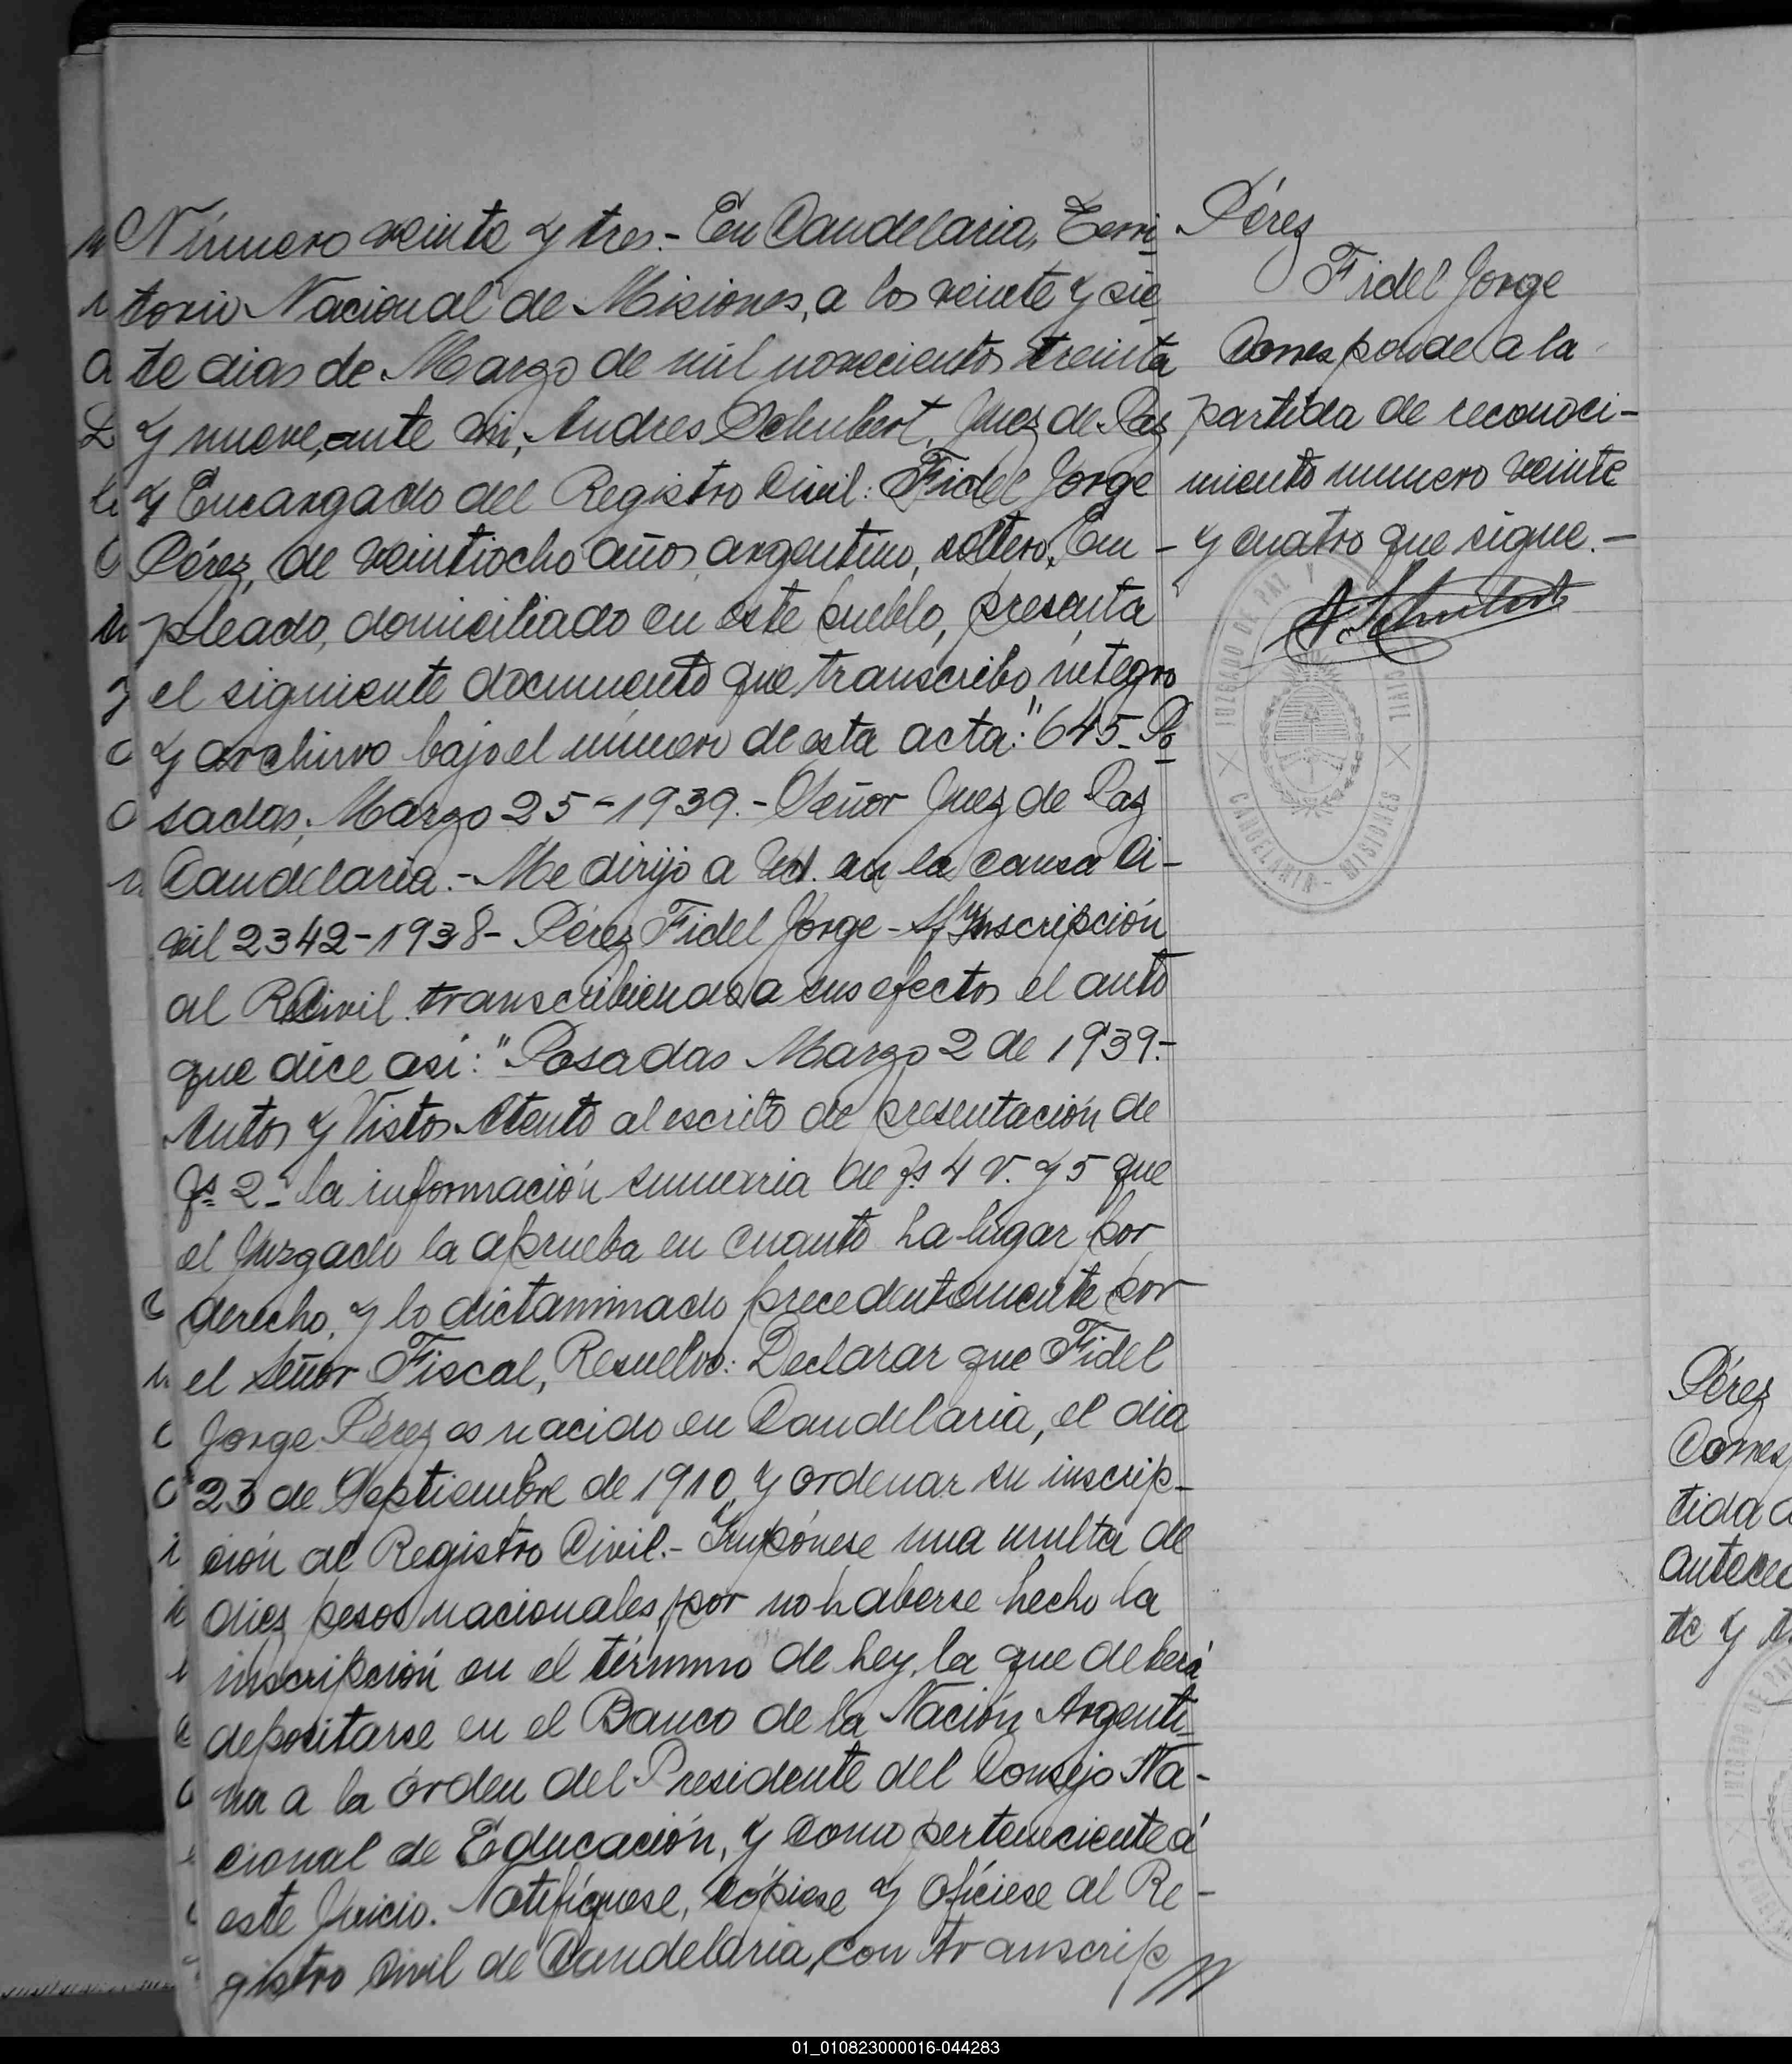 Número veinte y tres.- En Candelaria, Terri
torio Nacional de Misiones, a los veinte y sie
te dias de Marzo de mil novecientos treinta
y nueve, ante mi, Andres Schubert, Juez de Paz
y Encargado del Registro Civil: Fidel Jorge
Pérez, de veintiocho años, argentino, soltero, Em-
pleado, domiciliado en este pueblo, presenta
el siguiente documento que transcribo integro
y archivo bajo el número de esta acta: "645_Po
sadas, Marzo 25-1939.- Señor Juez de Paz
Candelaria.- Me dirijo a Ud. en la causa Ci-
vil 2342-1938- Pérez Fidel Jorge - S/ Inscripción
al R. Civil transcribiendo a sus efectos el auto
que dice asi: "Posadas Marzo 2 de 1939.-
Autos y Vistos Atento al escrito de presentación de
fs 2- la información sumaria de fs 4 v. y 5 que
el Juzgado la aprueba en cuanto ha lugar por
derecho, y lo dictaminado precedentemente por
el Señor Fiscal, Resuelvo: Declarar que Fidel
Jorge Pérez es nacido en Candelaria, el dia
23 de Septiembre de 1910, y ordenar su inscrip-
ción al Registro Civil.- Impónese una multa de
diez pesos nacionales, por no haberse hecho la
inscripción en el término de Ley, la que deberá
depositarse en el Banco de la Nación Argenti-
na a la órden del Presidente del Consejo Na-
cional de Educación, y como perteneciente á
este Juicio. Notifíquese, cópiese y Ofíciese al Re-
gistro Civil de Candelaria, con transcrip //
Pérez
Fidel Jorge
Corresponde a la
partida de reconoci-
miento numero veinte
y cuatro que sigue.-
A. Schubert
JUZGADO DE PAZ Y CIVIL
CANDELARIA - MISIONES
Pérez
Corres
tida
antece
te y t
01_010823000016-044283